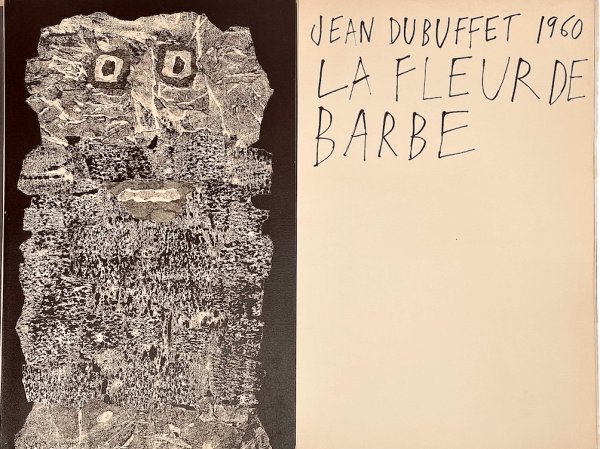 JEAN DUBUFFET 1960
LA FLEUR DE
BARBE